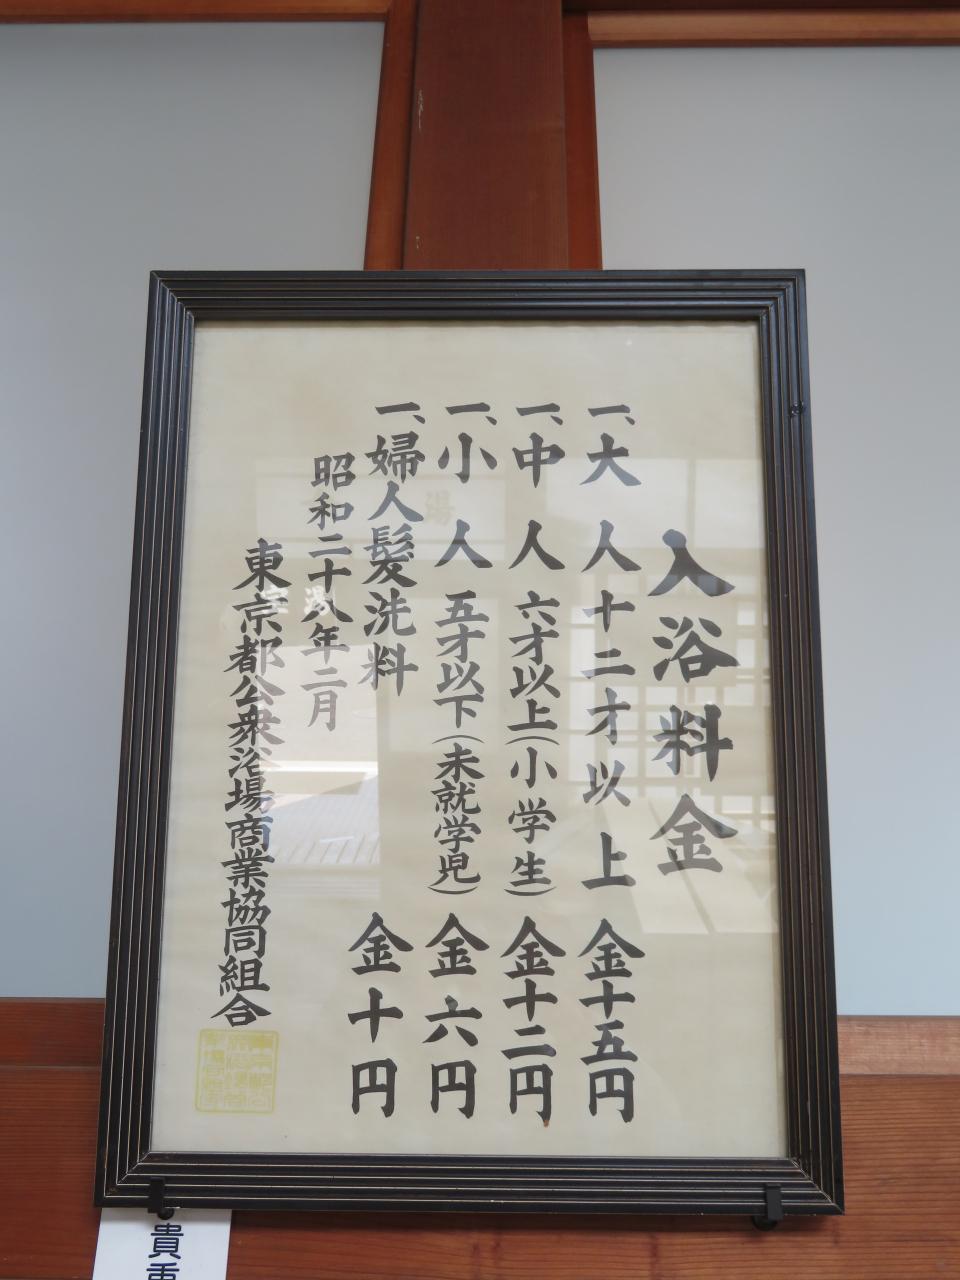 入浴料金
一、大人十二才以上 金十五円
一、中人六才以上(小学生) 金十二円
一、小人五才以下(未就学児) 金六円
一、婦人髪洗料 金十円
昭和二十八年二月
東京都公衆浴場商業協同組合
貴重